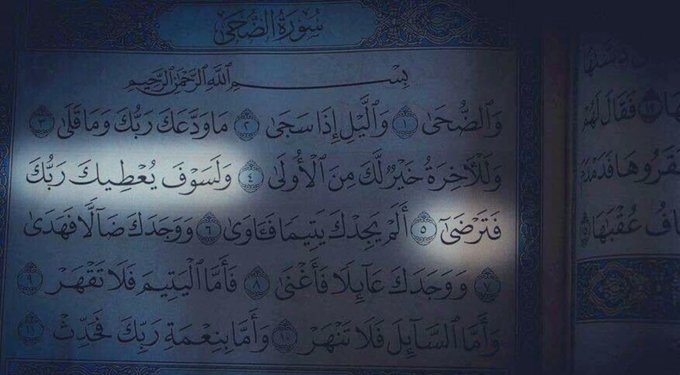 سُورَةُ الضُّحَىٰ
بِسْمِ ٱللَّهِ ٱلرَّحْمَٰنِ ٱلرَّحِيمِ
وَٱلضُّحَىٰ ١ وَٱلَّيْلِ إِذَا سَجَىٰ ٢ مَا وَدَّعَكَ رَبُّكَ وَمَا قَلَىٰ ٣
وَلَلْأَخِرَةُ خَيْرٌ لَّكَ مِنَ ٱلْأُولَىٰ ٤ وَلَسَوْفَ يُعْطِيكَ رَبُّكَ
فَتَرْضَىٰٓ ٥ أَلَمْ يَجِدْكَ يَتِيمًا فَـَٔاوَىٰ ٦ وَوَجَدَكَ ضَآلًّا فَهَدَىٰ
٧ وَوَجَدَكَ عَآئِلًا فَأَغْنَىٰ ٨ فَأَمَّا ٱلْيَتِيمَ فَلَا تَقْهَرْ ٩
وَأَمَّا ٱلسَّآئِلَ فَلَا تَنْهَرْ ١٠ وَأَمَّا بِنِعْمَةِ رَبِّكَ فَحَدِّثْ ١١
فَقَالَ لَهُمْ
قَرُوهَا فَدَمْدَمَ
افُ عُقْبَٰهَا